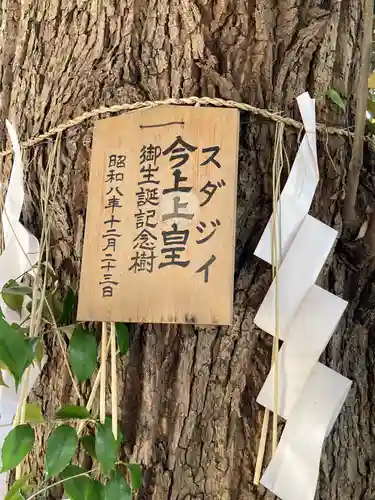 スダジイ
一 今上上皇
御生誕記念樹
昭和八年十二月二十三日